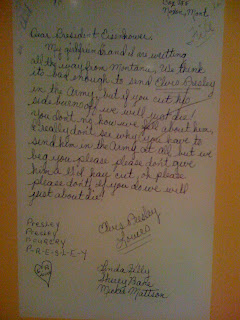 Box 755
Noxon, Mont
Dear President Eisenhower,
My girlfriends and I are writting
all the way from Montana, We think
its bad enough to send Elvis Presley
in the Army, but if you cut his
side burns off we will just die!
You don't no how we fell about him,
I really don't see why you have to
send him in the Army at all, but we
beg you please please don't give
him a G.I. hair cut, oh please
please don't! If you do we will
just about die!
Elvis Presley
Lovers
Presley
Presley
IS OUR CRY
P-R-E-S-L-E-Y
Linda Kelly
Sherry Bane
Mickie Mattson